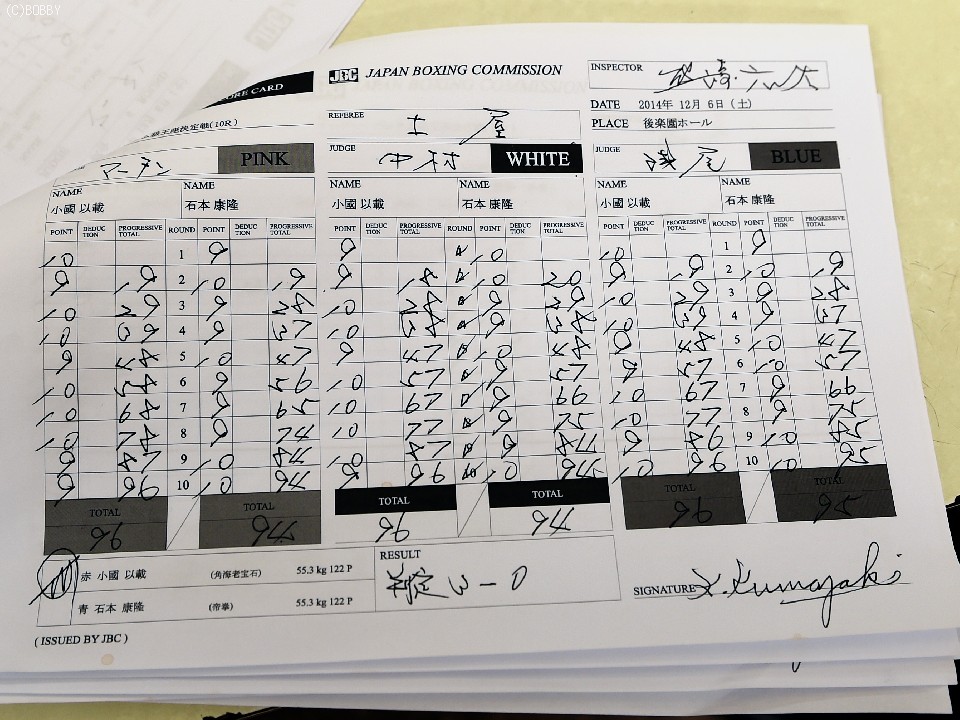 (C)BOBBY
ORE CARD
JBC JAPAN BOXING COMMISSION
INSPECTOR
DATE 2014年 12月 6日 (土)
PLACE 後楽園ホール
王座決定戦(10R)
REFEREE 土屋
マーチン PINK
JUDGE 中村 WHITE
JUDGE BLUE
NAME NAME NAME NAME NAME NAME
小國 以載 石本 康隆 小國 以載 石本 康隆 小國 以載 石本 康隆
POINT DEDUCTION PROGRESSIVE TOTAL ROUND POINT DEDUCTION PROGRESSIVE TOTAL POINT DEDUCTION PROGRESSIVE TOTAL ROUND POINT DEDUCTION PROGRESSIVE TOTAL POINT DEDUCTION PROGRESSIVE TOTAL ROUND POINT DEDUCTION PROGRESSIVE TOTAL
10 1 9 9 1 10 10 1 9
9 19 2 10 19 9 18 2 10 20 9 19 2 10 19
10 29 3 9 28 10 28 3 9 29 10 29 3 9 28
10 39 4 9 37 10 38 4 9 38 10 39 4 9 37
9 48 5 10 47 9 47 5 10 48 9 48 5 10 47
10 58 6 9 56 10 57 6 9 57 9 57 6 10 57
10 68 7 9 65 10 67 7 9 66 10 67 7 9 66
10 78 8 9 74 10 77 8 9 75 10 77 8 9 75
9 87 9 10 84 10 87 9 9 84 9 86 9 10 85
9 96 10 10 94 9 96 10 10 94 10 96 10 10 95
TOTAL TOTAL TOTAL TOTAL TOTAL TOTAL
96 94 96 94 96 95
赤 小國 以載 (角海老宝石) 55.3 kg 122 P
青 石本 康隆 (帝拳) 55.3 kg 122 P
RESULT
判定 3-0
SIGNATURE Y.Kumazaki
( ISSUED BY JBC )